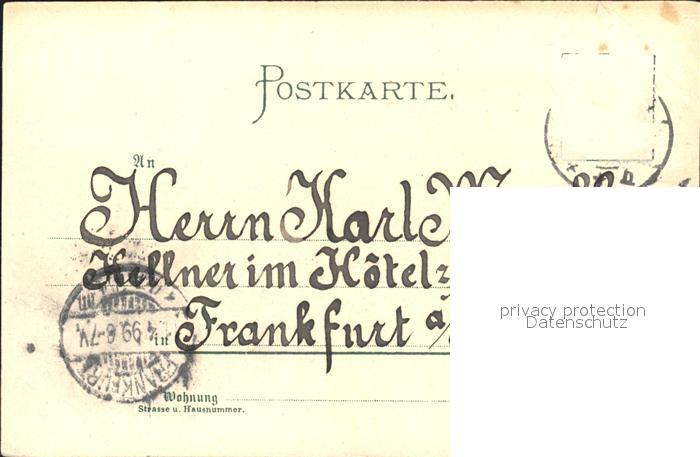 POSTKARTE.
An
Herrn Karl
Kellner im Hôtel z
in Frankfurt a/
Wohnung
Strasse u. Hausnummer.
FRANKFURT
99. 6-7N.
privacy protection
Datenschutz